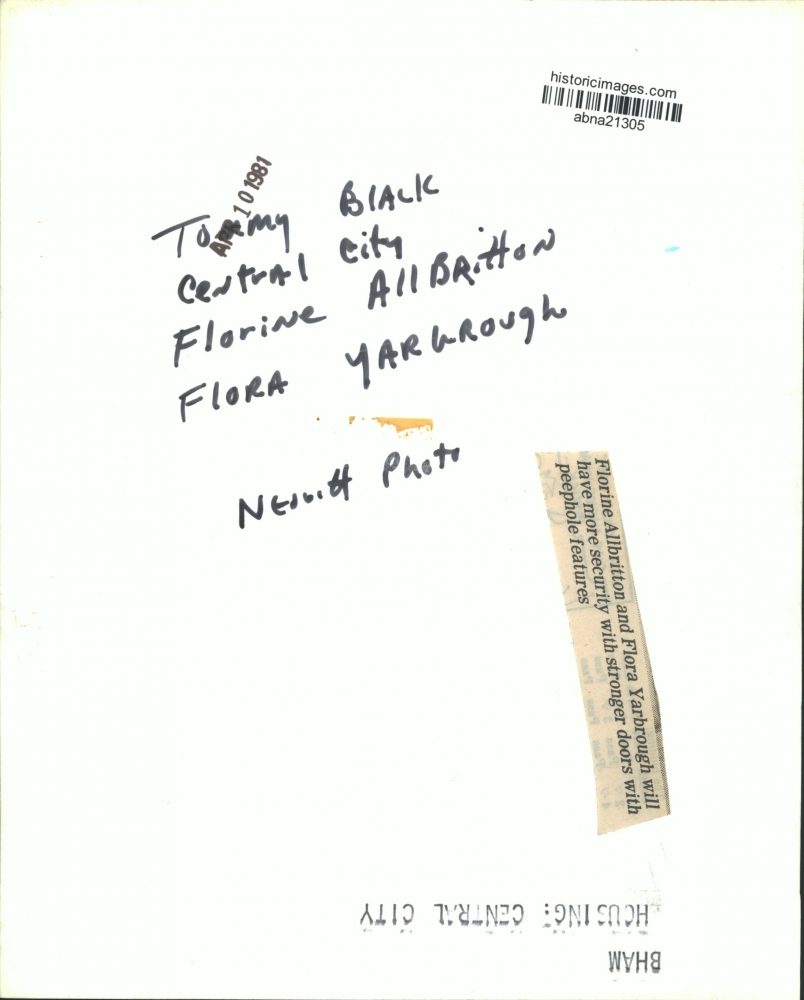 historicimages.com
abna21305
APR 10 1981
Tommy Black
Central City
Florine AllBRittoN
FloRA YARbRough
Nesbitt Photo
Florine Allbritton and Flora Yarbrough will
have more security with stronger doors with
peephole features
HOUSING: CENTRAL CITY
BHAM